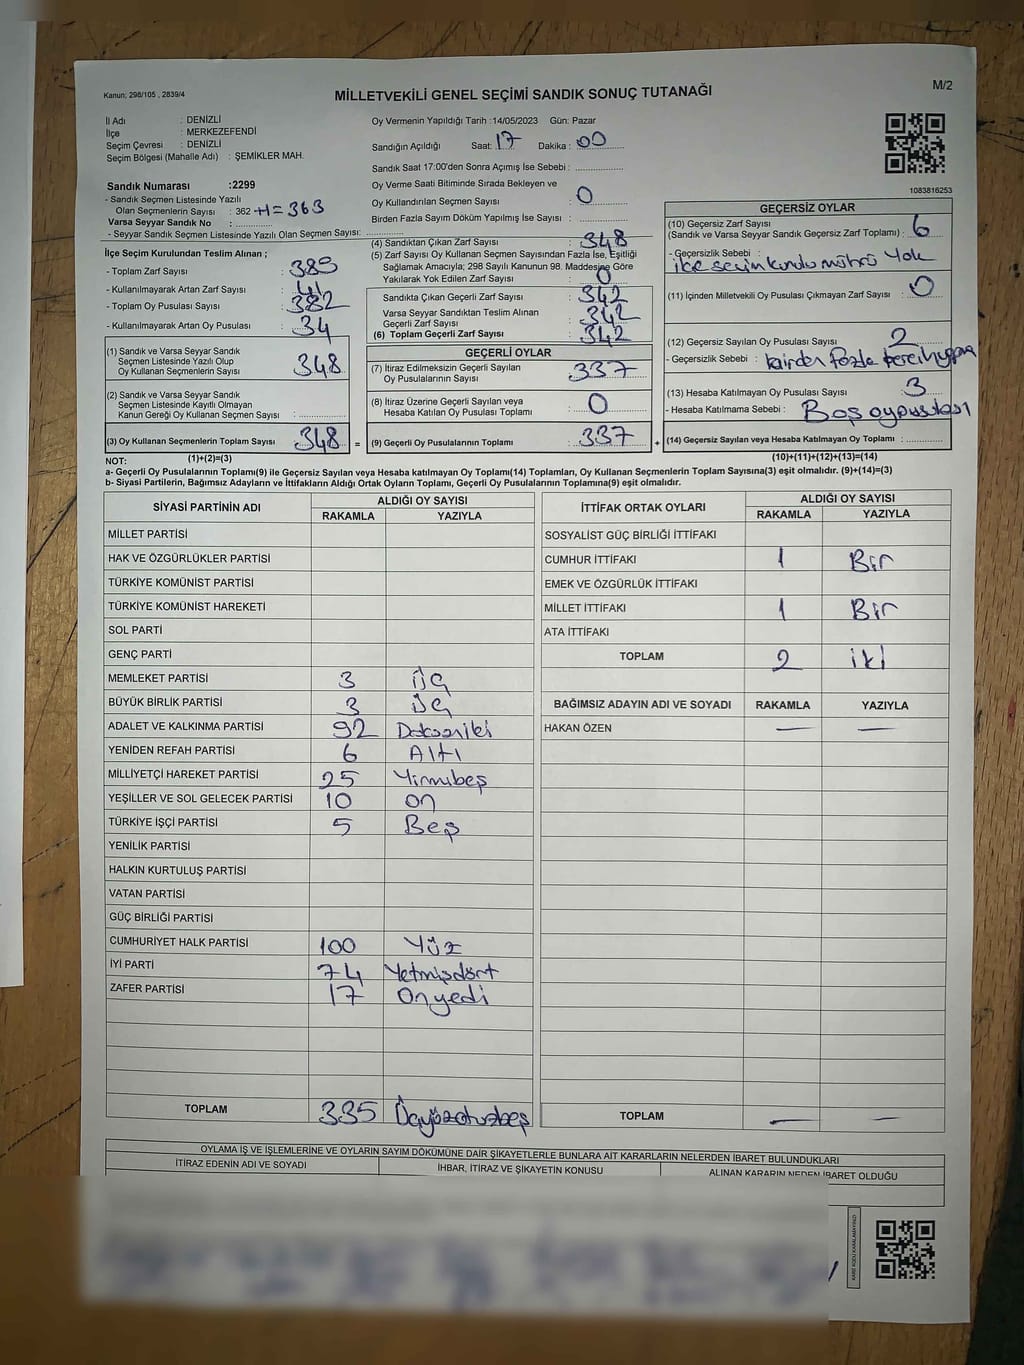 Kanun; 298/105 , 2839/4
MİLLETVEKİLİ GENEL SEÇİMİ SANDIK SONUÇ TUTANAĞI
M/2
İl Adı : DENİZLİ
İlçe : MERKEZEFENDİ
Seçim Çevresi : DENİZLİ
Seçim Bölgesi (Mahalle Adı) : ŞEMİKLER MAH.
Oy Vermenin Yapıldığı Tarih :14/05/2023 Gün: Pazar
Sandığın Açıldığı Saat: 17 Dakika : 00
Sandık Saat 17:00'den Sonra Açımış İse Sebebi :
Oy Verme Saati Bitiminde Sırada Bekleyen ve
Oy Kullandırılan Seçmen Sayısı : 0
Birden Fazla Sayım Döküm Yapılmış İse Sayısı :
1083816253
Sandık Numarası :2299
- Sandık Seçmen Listesinde Yazılı
Olan Seçmenlerin Sayısı : 362 +1= 363
Varsa Seyyar Sandık No :
- Seyyar Sandık Seçmen Listesinde Yazılı Olan Seçmen Sayısı:
İlçe Seçim Kurulundan Teslim Alınan ;
- Toplam Zarf Sayısı : 389
- Kullanılmayarak Artan Zarf Sayısı : 41
- Toplam Oy Pusulası Sayısı : 382
- Kullanılmayarak Artan Oy Pusulası : 34
(1) Sandık ve Varsa Seyyar Sandık
Seçmen Listesinde Yazılı Olup
Oy Kullanan Seçmenlerin Sayısı : 348
(2) Sandık ve Varsa Seyyar Sandık
Seçmen Listesinde Kayıtlı Olmayan
Kanun Gereği Oy Kullanan Seçmen Sayısı :
(3) Oy Kullanan Seçmenlerin Toplam Sayısı : 348 =
(1)+(2)=(3)
(4) Sandıktan Çıkan Zarf Sayısı : 348
(5) Zarf Sayısı Oy Kullanan Seçmen Sayısından Fazla İse, Eşitliği
Sağlamak Amacıyla; 298 Sayılı Kanunun 98. Maddesine Göre
Yakılarak Yok Edilen Zarf Sayısı : 0
Sandıkta Çıkan Geçerli Zarf Sayısı : 342
Varsa Seyyar Sandıktan Teslim Alınan
Geçerli Zarf Sayısı : 342
(6) Toplam Geçerli Zarf Sayısı : 342
GEÇERLİ OYLAR
(7) İtiraz Edilmeksizin Geçerli Sayılan
Oy Pusulalarının Sayısı : 337
(8) İtiraz Üzerine Geçerli Sayılan veya
Hesaba Katılan Oy Pusulası Toplamı : 0
(9) Geçerli Oy Pusulalarının Toplamı : 337 +
GEÇERSİZ OYLAR
(10) Geçersiz Zarf Sayısı
(Sandık ve Varsa Seyyar Sandık Geçersiz Zarf Toplamı) : 6
- Geçersizlik Sebebi :
ilçe seçim kurulu mührü Yok
(11) İçinden Milletvekili Oy Pusulası Çıkmayan Zarf Sayısı : 0
(12) Geçersiz Sayılan Oy Pusulası Sayısı : 2
- Geçersizlik Sebebi : birden fazla
(13) Hesaba Katılmayan Oy Pusulası Sayısı : 3
- Hesaba Katılmama Sebebi : Boş oy pusulası
(14) Geçersiz Sayılan veya Hesaba Katılmayan Oy Toplamı :
(10)+(11)+(12)+(13)=(14)
NOT:
a- Geçerli Oy Pusulalarının Toplamı(9) ile Geçersiz Sayılan veya Hesaba katılmayan Oy Toplamı(14) Toplamları, Oy Kullanan Seçmenlerin Toplam Sayısına(3) eşit olmalıdır. (9)+(14)=(3)
b- Siyasi Partilerin, Bağımsız Adayların ve İttifakların Aldığı Ortak Oyların Toplamı, Geçerli Oy Pusulalarının Toplamına(9) eşit olmalıdır.
SİYASİ PARTİNİN ADI ALDIĞI OY SAYISI
RAKAMLA YAZIYLA
MİLLET PARTİSİ
HAK VE ÖZGÜRLÜKLER PARTİSİ
TÜRKİYE KOMÜNİST PARTİSİ
TÜRKİYE KOMÜNİST HAREKETİ
SOL PARTİ
GENÇ PARTİ
MEMLEKET PARTİSİ 3 Üç
BÜYÜK BİRLİK PARTİSİ 3 Üç
ADALET VE KALKINMA PARTİSİ 92 Doksaniki
YENİDEN REFAH PARTİSİ 6 Altı
MİLLİYETÇİ HAREKET PARTİSİ 25 Yirmibeş
YEŞİLLER VE SOL GELECEK PARTİSİ 10 On
TÜRKİYE İŞÇİ PARTİSİ 5 Beş
YENİLİK PARTİSİ
HALKIN KURTULUŞ PARTİSİ
VATAN PARTİSİ
GÜÇ BİRLİĞİ PARTİSİ
CUMHURİYET HALK PARTİSİ 100 Yüz
İYİ PARTİ 74 Yetmişdört
ZAFER PARTİSİ 17 Onyedi
TOPLAM 335 Üçyüzotuzbeş
İTTİFAK ORTAK OYLARI ALDIĞI OY SAYISI
RAKAMLA YAZIYLA
SOSYALİST GÜÇ BİRLİĞİ İTTİFAKI
CUMHUR İTTİFAKI 1 Bir
EMEK VE ÖZGÜRLÜK İTTİFAKI
MİLLET İTTİFAKI 1 Bir
ATA İTTİFAKI
TOPLAM 2 iki
BAĞIMSIZ ADAYIN ADI VE SOYADI RAKAMLA YAZIYLA
HAKAN ÖZEN — —
TOPLAM — —
OYLAMA İŞ VE İŞLEMLERİNE VE OYLARIN SAYIM DÖKÜMÜNE DAİR ŞİKAYETLERLE BUNLARA AİT KARARLARIN NELERDEN İBARET BULUNDUKLARI
İTİRAZ EDENİN ADI VE SOYADI İHBAR, İTİRAZ VE ŞİKAYETİN KONUSU ALINAN KARARIN NEDEN İBARET OLDUĞU